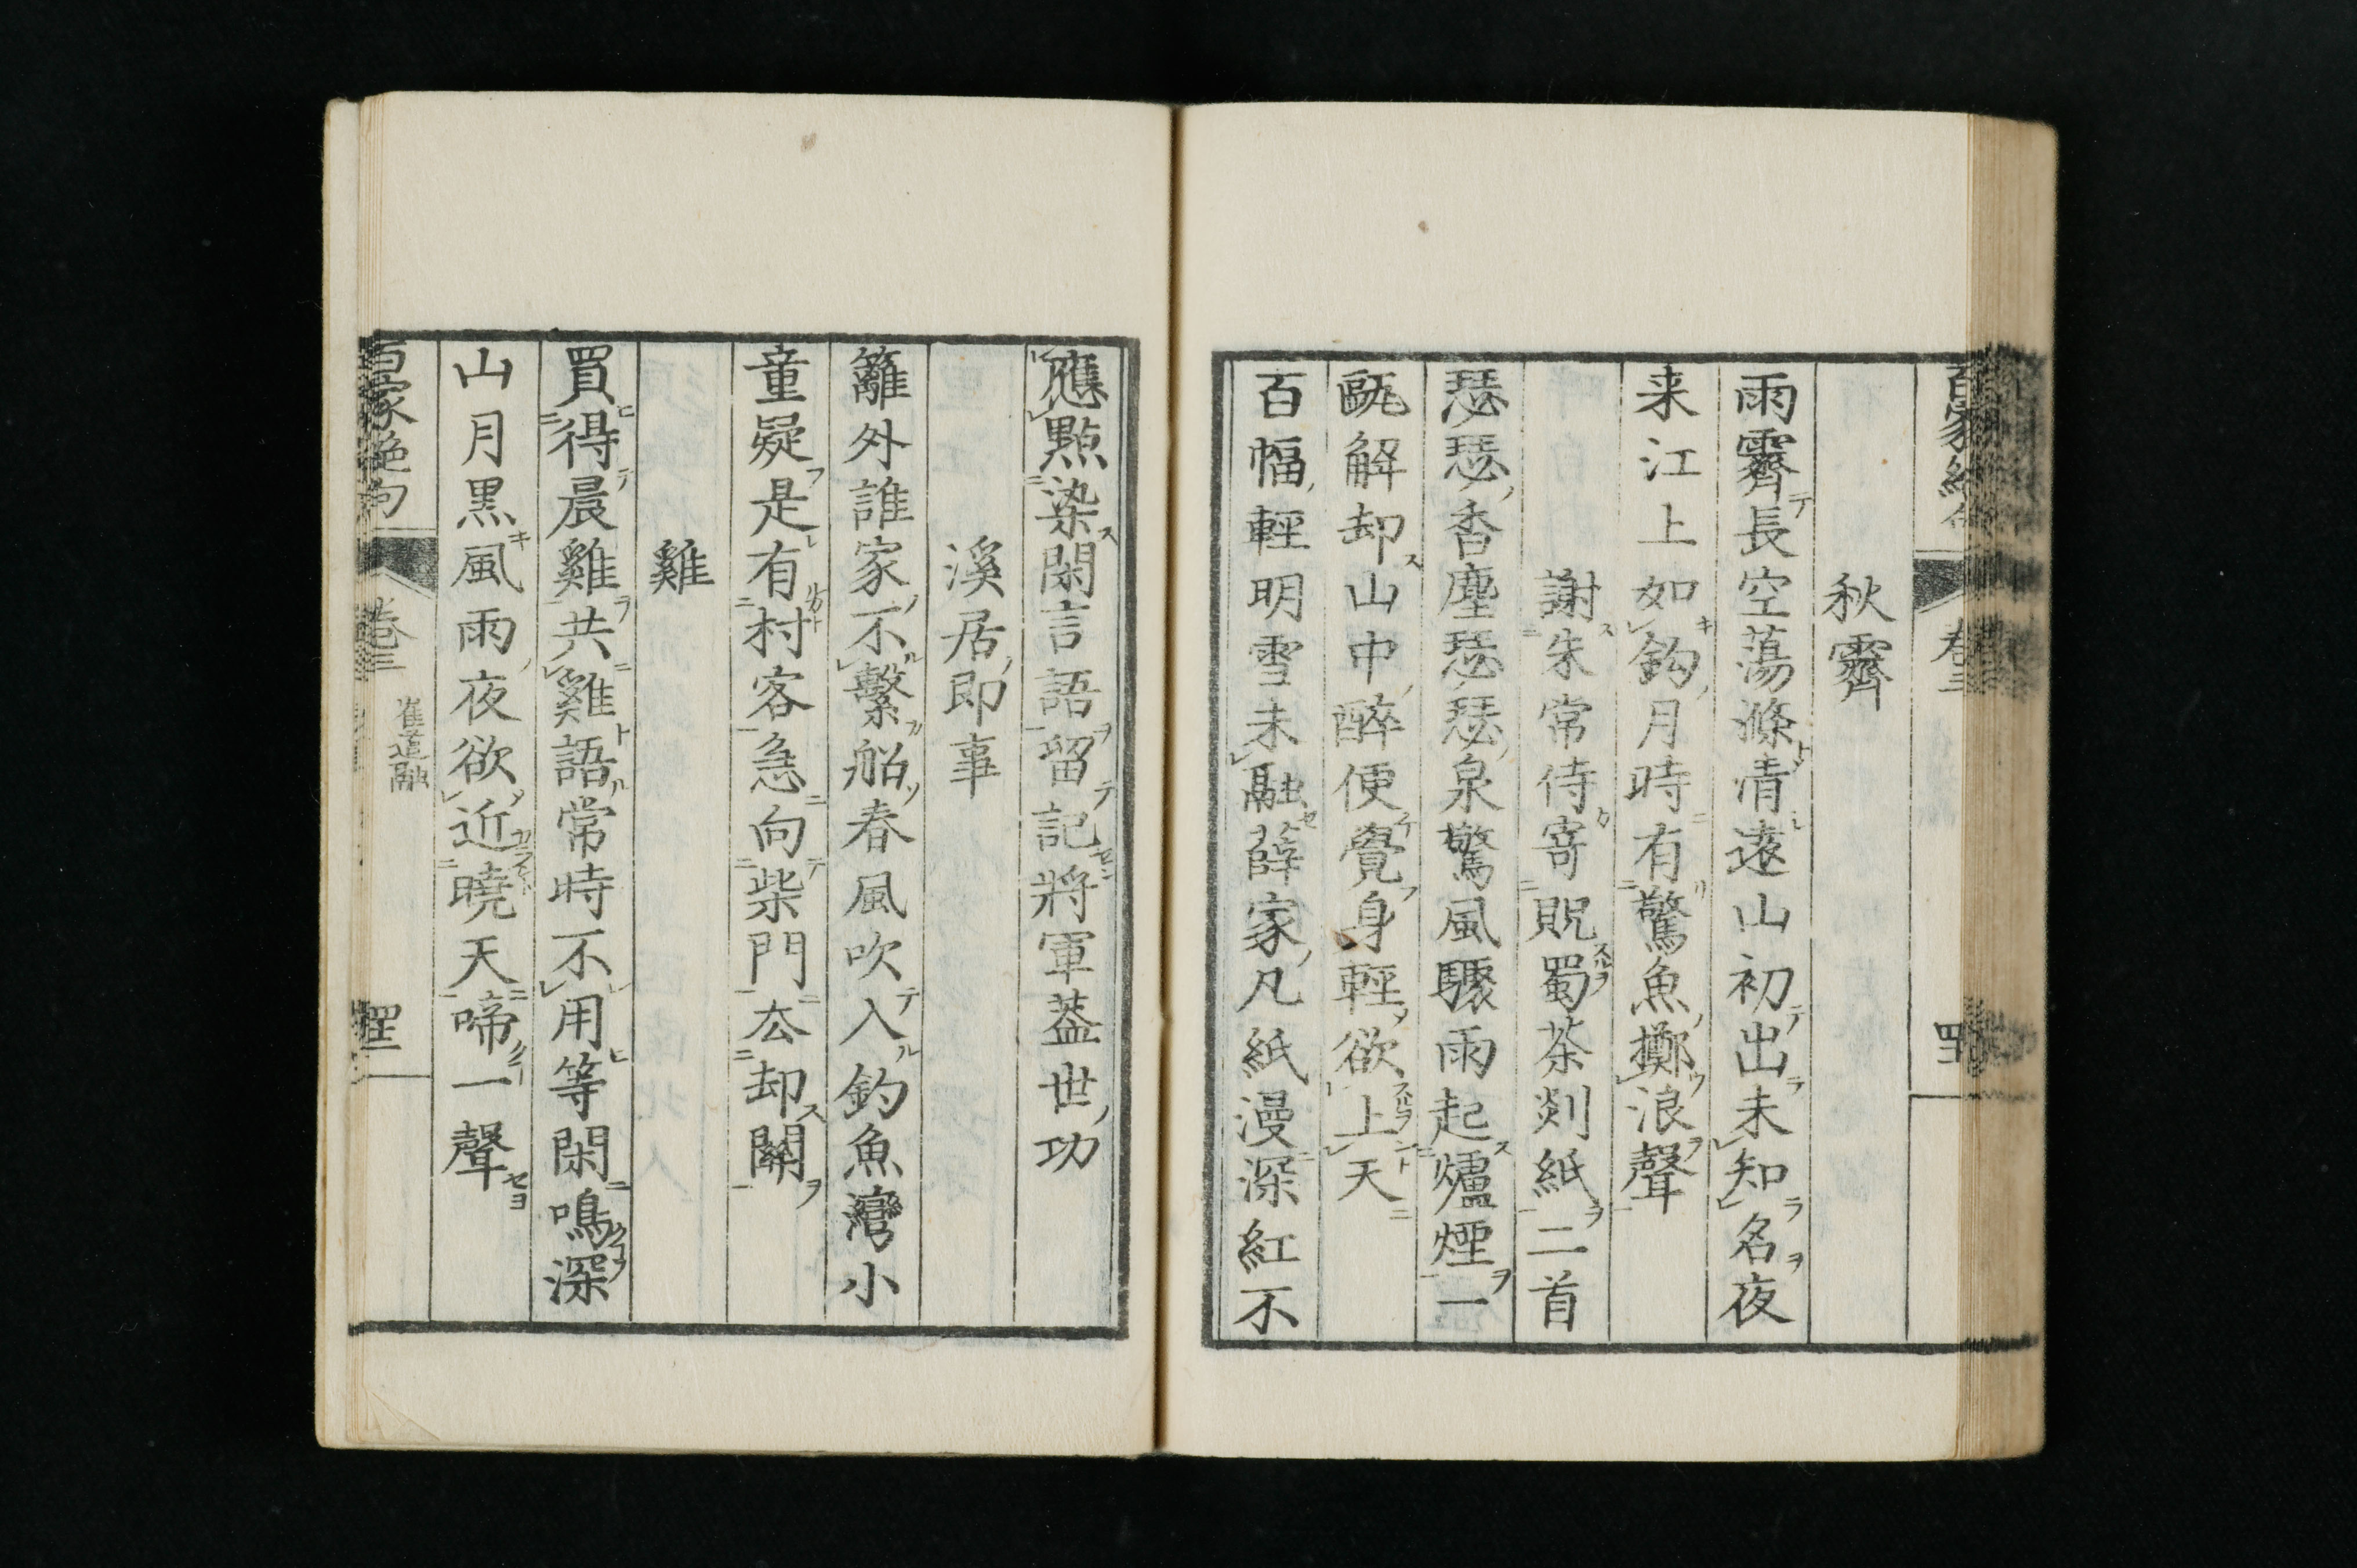 秋霽
雨霽長空蕩滌清遠山初出未知名夜
来江上如鈎月時有驚魚擲浪聲
謝朱常侍寄貺蜀茶剡紙二首
瑟瑟香塵瑟瑟泉驚風驟雨起爐煙一
甌解却山中醉便覺身輕欲上天
百幅輕明雪未融薛家凡紙漫深紅不
應點染閑言語留記將軍蓋世功
溪居即事
籬外誰家不繫船春風吹入釣魚灣小
童疑是有村客急向柴門去却關
雞
買得晨雞共雞語常時不用等閑鳴深
山月黒風雨夜欲近曉天啼一聲
百家絶句
卷三
崔道融